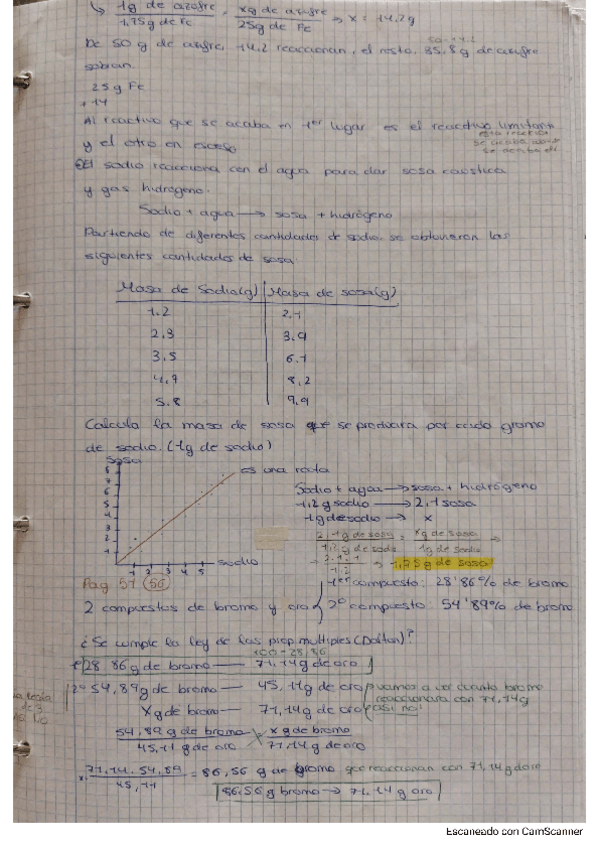 ↳ 1g de azufre = xg de azufre ⇒ x = 14.2g
1,75g de Fe 25g Fe
50-14.2
De 50 g de azufre, 14.2 reaccionan, el resto. 35.8g de azufre
sobran.
25g Fe
+14
Al reactivo que se acaba en 1er lugar es el reactivo limitante
y el otro en exceso
se acaba
El sodio reacciona con el agua para dar sosa caústica
y gas hidrógeno.
Sodio + agua → sosa + hidrógeno
Partiendo de diferentes cantidades de sodio. se obtuvieron las
siguientes cantidades de sosa
Masa de Sodio(g) Masa de sosa(g)
1.2 2.1
2,3 3.9
3,5 6.1
4,7 8,2
5.8 9,9
Calcula la masa de sosa que se producirá por cada gramo
de sodio. (1g de sodio)
Sosa
8
7
6
5
4
3
2
1
1 2 3 4 5 sodio
es una recta
Sodio + agua → sosa + hidrógeno
1,2g sodio → 2,1 sosa
1g de sodio → x
2,1g de sosa = xg de sosa ⇒
1,2g de sodio 1g de sodio
= 2.1·1 ⇒ 1,75g de sosa
1.2
Pag 57 (56)
2 compuestos de bromo y oro
1er compuesto: 28'86% de bromo
2º compuesto: 54'89% de bromo
¿Se cumple la ley de las prop. multiples (Dalton)?
100-28,86
1º 28 86g de bromo — 71,14g de oro
2º 54,89g de bromo — 45,11g de oro
xg de bromo — 71,14g de oro
vamos a ver cuanto bromo
reaccionaria con 71,14g
54,89 g de bromo = xg de bromo
45,11 g de oro 71,14g de oro
x= 71,14·54,89 = 86,56 g de bromo que reaccionan con 71,14g de oro
45,11
86.56g bromo → 71.14g oro
Escaneado con CamScanner